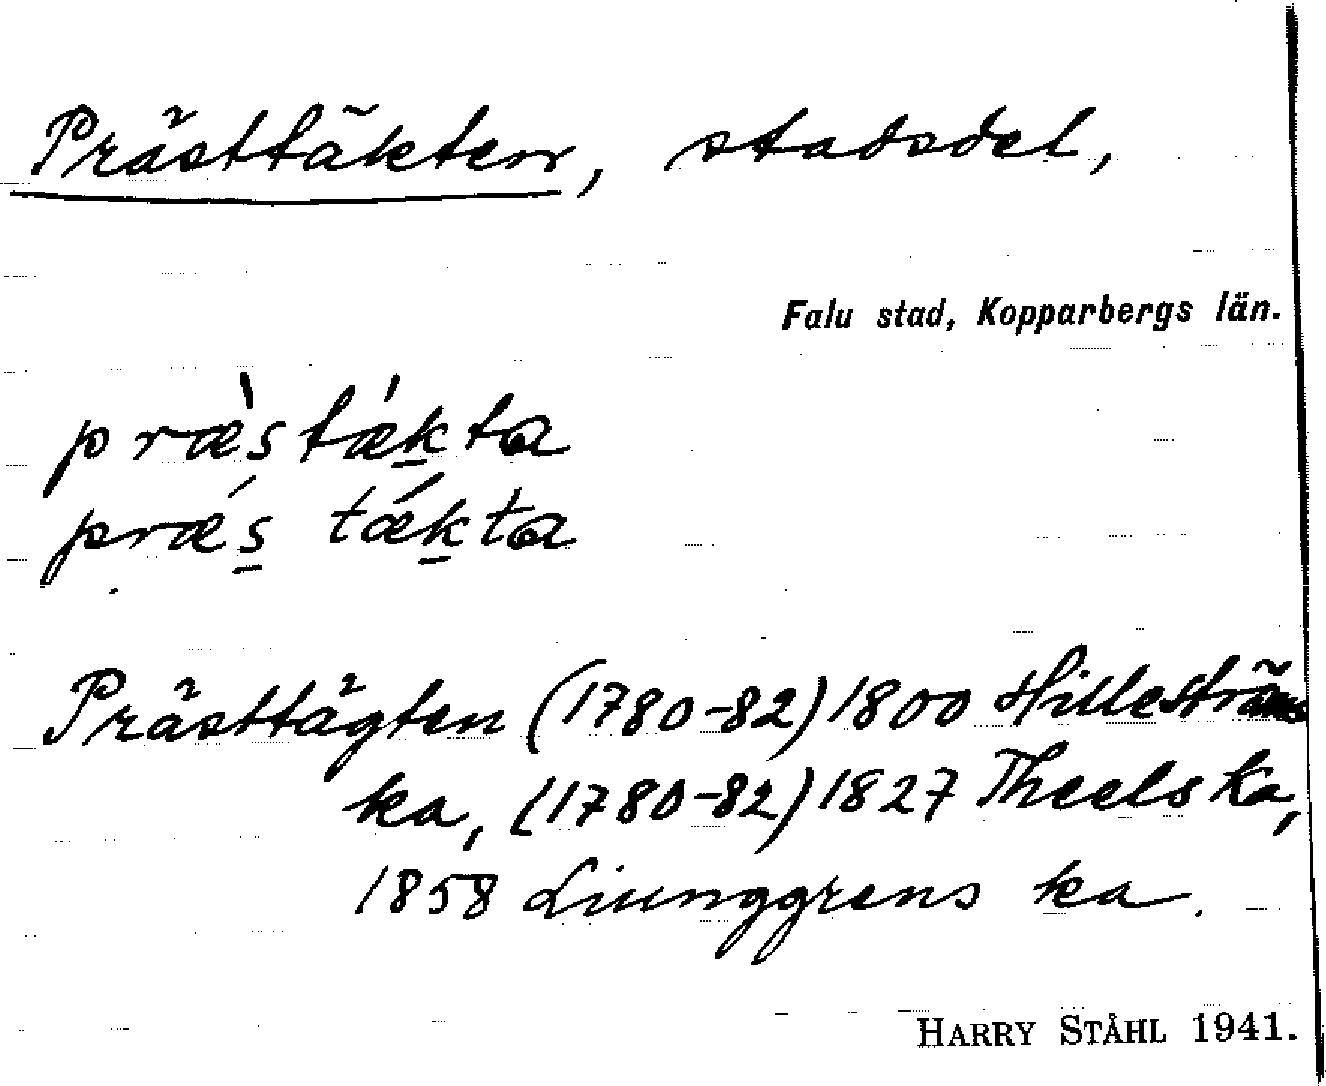 Prästtäkten, stadsdel,
Falu stad, Kopparbergs län.
præ̀stǽk̠ta
prǽs̠ tǽk̠ta
Prästtägten (1780-82) 1800 Hilleströms
ka, (1780-82) 1827 Theels ka,
1858 Liunggrens ka.
HARRY STÅHL 1941.